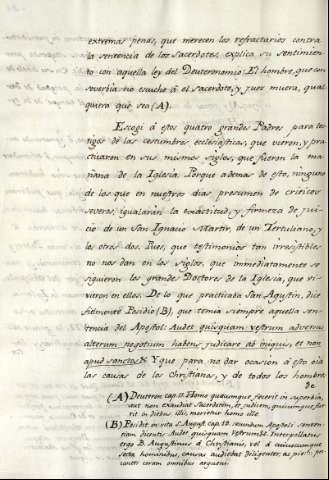 extremas penas, que merecen los refractarios contra
la sentencia de los Sacerdotes, explica su sentimien
to con aquella ley del Deuteronomio. El hombre, que con
sovervia no escuche á el Sacerdote, y Juez muera, qual
quiera que sea (A).
Escogi á estos quatro grandes Padres para tes
tigos de las costumbres eclesiasticas, que vieron, y pra
cticaron en sus mismos siglos, que fueron la ma
ñana de la Iglesia. Porque ademas de esto, ninguno
de los que en nuestros dias presumen de criticos
severos, igualarán la exactitud, y firmeza de jui
cio de un San Ignacio Martir, de un Tertuliano, y
los otros dos. Pues, que testimonios tan irresistible
no nos dan en los siglos, que immediatamente se
siguieron los grandes Doctores de la Iglesia, que vi
vieron en ellos. De lo que practicaba San Agustin, dice
Posidio (B), que tenia siempre aquella sen
tencia del Apostol: Audet quisquam vestrum adversus
alterum negotium habens, judicari ab iniquis, et non
apud sanctos? Y que para no dar ocasion á esto oia
las causas de los Christianos, y de todos los hombres
de
(A) Deuteron. cap. Homo quicumque, fecerit in superbia,
aut non exaudiat Sacerdotem, et judicem, quicumque fue
rit in diebus illis, morietur homo ille.
(B) Posidi. in vita S. August. cap. 19. secundum Apostoli senten
tiam dicentis Audet quisquam vestrum &c. Interpellatus
ergo B. Augustinus á Christianis, vel á cuiuscumque
secta hominibus, causas audiebat diligenter, ac pie